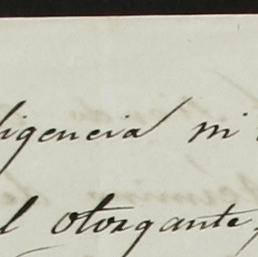 ligencia ni
l otorgante,